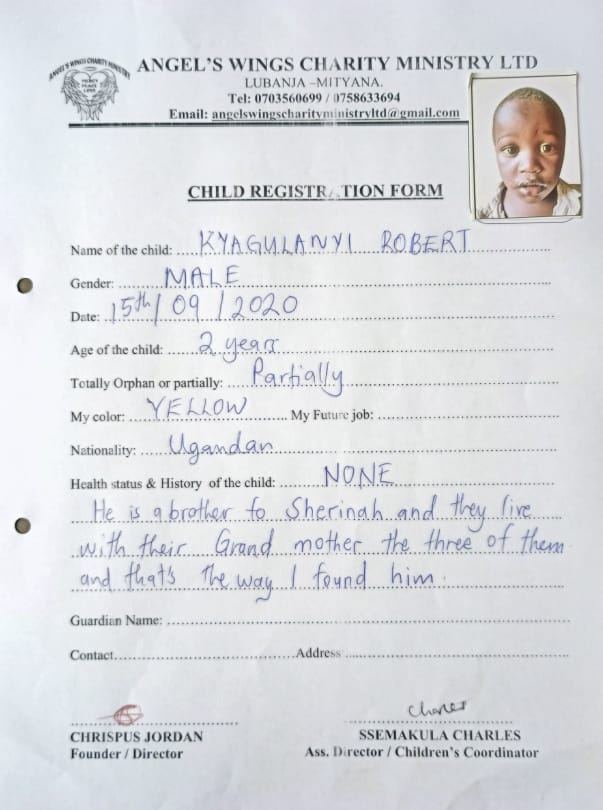 ANGEL'S WINGS CHARITY MINISTRY
MERCY
PEACE
LOVE
ANGEL'S WINGS CHARITY MINISTRY LTD
LUBANJA –MITYANA.
Tel: 0703560699 / 0758633694
Email: angelswingscharityministryltd@gmail.com
CHILD REGISTRATION FORM
Name of the child: KYAGULANYI ROBERT
Gender: MALE
Date: 15th / 09 / 2020
Age of the child: 2 years
Totally Orphan or partially: Partially
My color: YELLOW My Future job:
Nationality: Ugandan
Health status & History of the child: NONE
He is a brother to Sherinah and they live
with their Grand mother the three of them
and that's the way I found him.
Guardian Name:
Contact Address
Charles
CHRISPUS JORDAN SSEMAKULA CHARLES
Founder / Director Ass. Director / Children's Coordinator